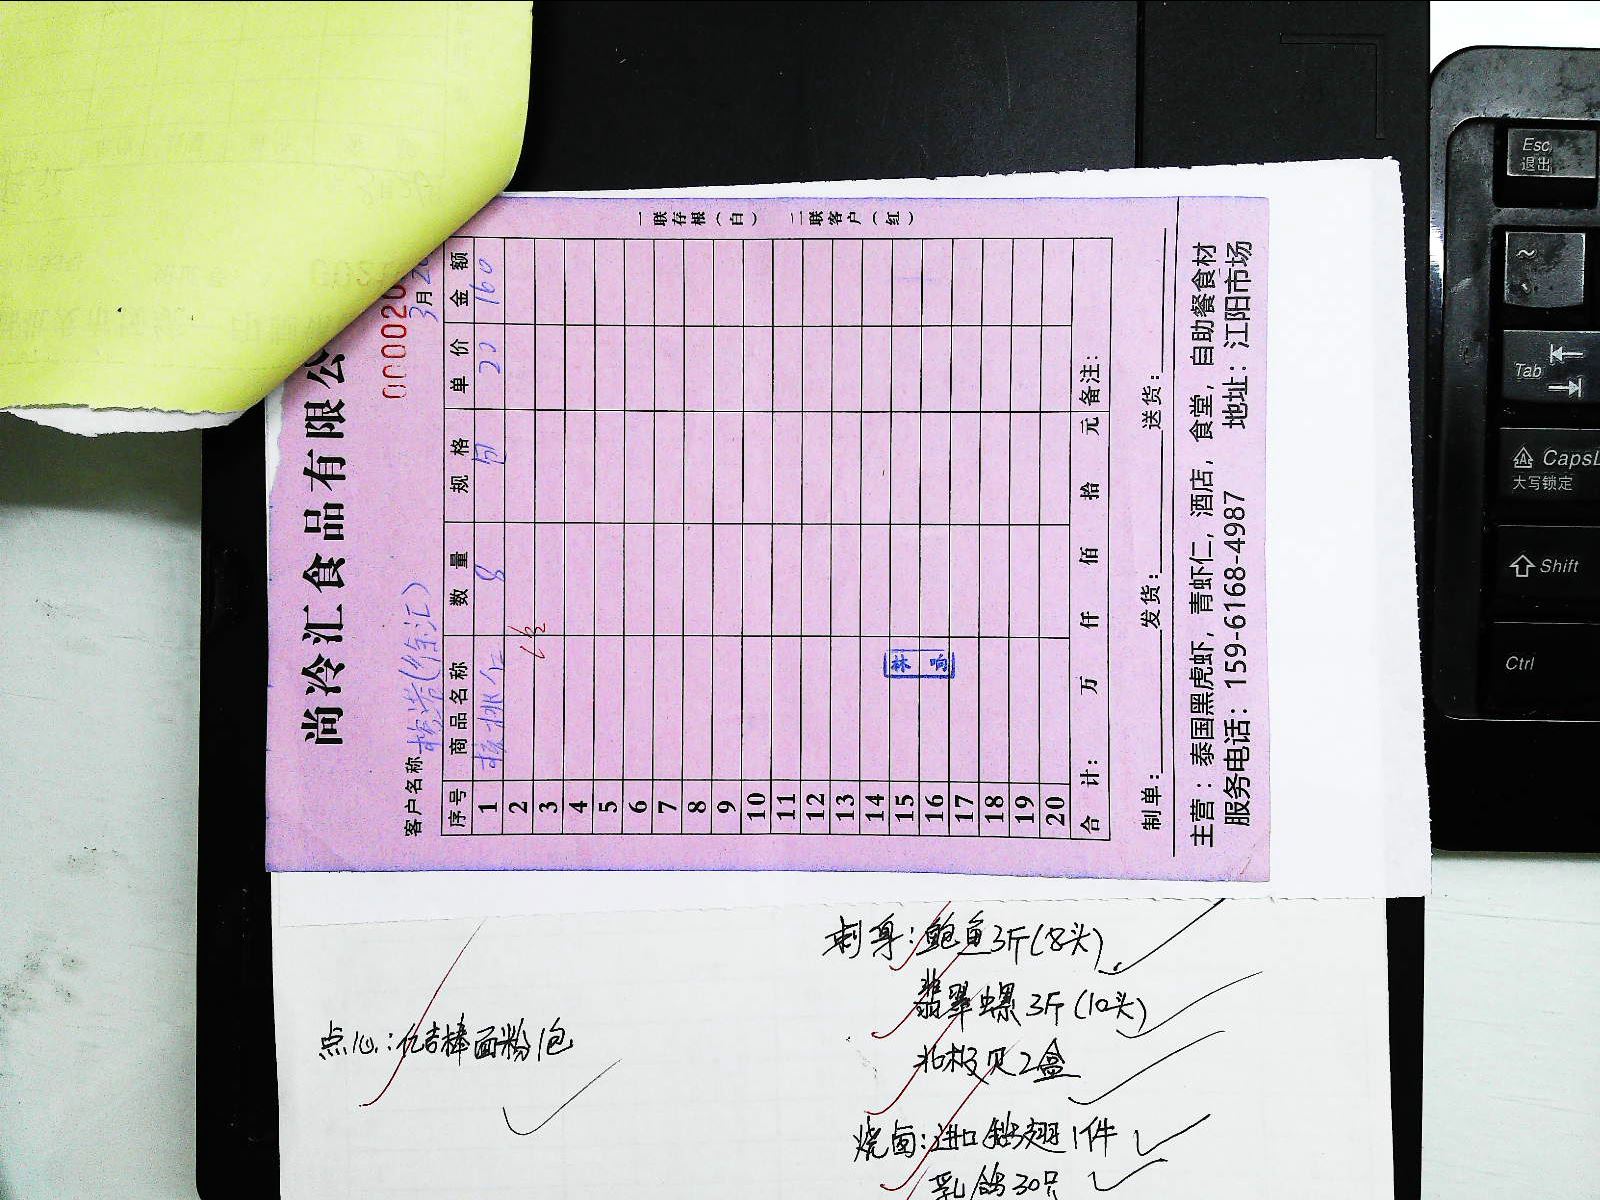 尚冷汇食品有限公
000020
客户名称 (徐汇) 3月2
序号 商品名称 数量 规格 单价 金额
1 核桃仁 8 包 20 160
2
3
4
5
6
7
8
9
10
11
12
13
14
15
16
17
18
19
20
合计： 万 仟 佰 拾 元 备注：
制单： 发货： 送货：
主营：泰国黑虎虾，青虾仁，酒店，食堂，自助餐食材
服务电话：159-6168-4987 地址：江阳市场
一联存根（白） 二联客户（红）
刺身：鲍鱼3斤(8头)
翡翠螺3斤(10头)
北极贝2盒
烧卤：进口 翅1件
乳鸽30只
点心：吉棒面粉1包
Esc
退出
~
Tab
CapsL
大写锁定
Shift
Ctrl